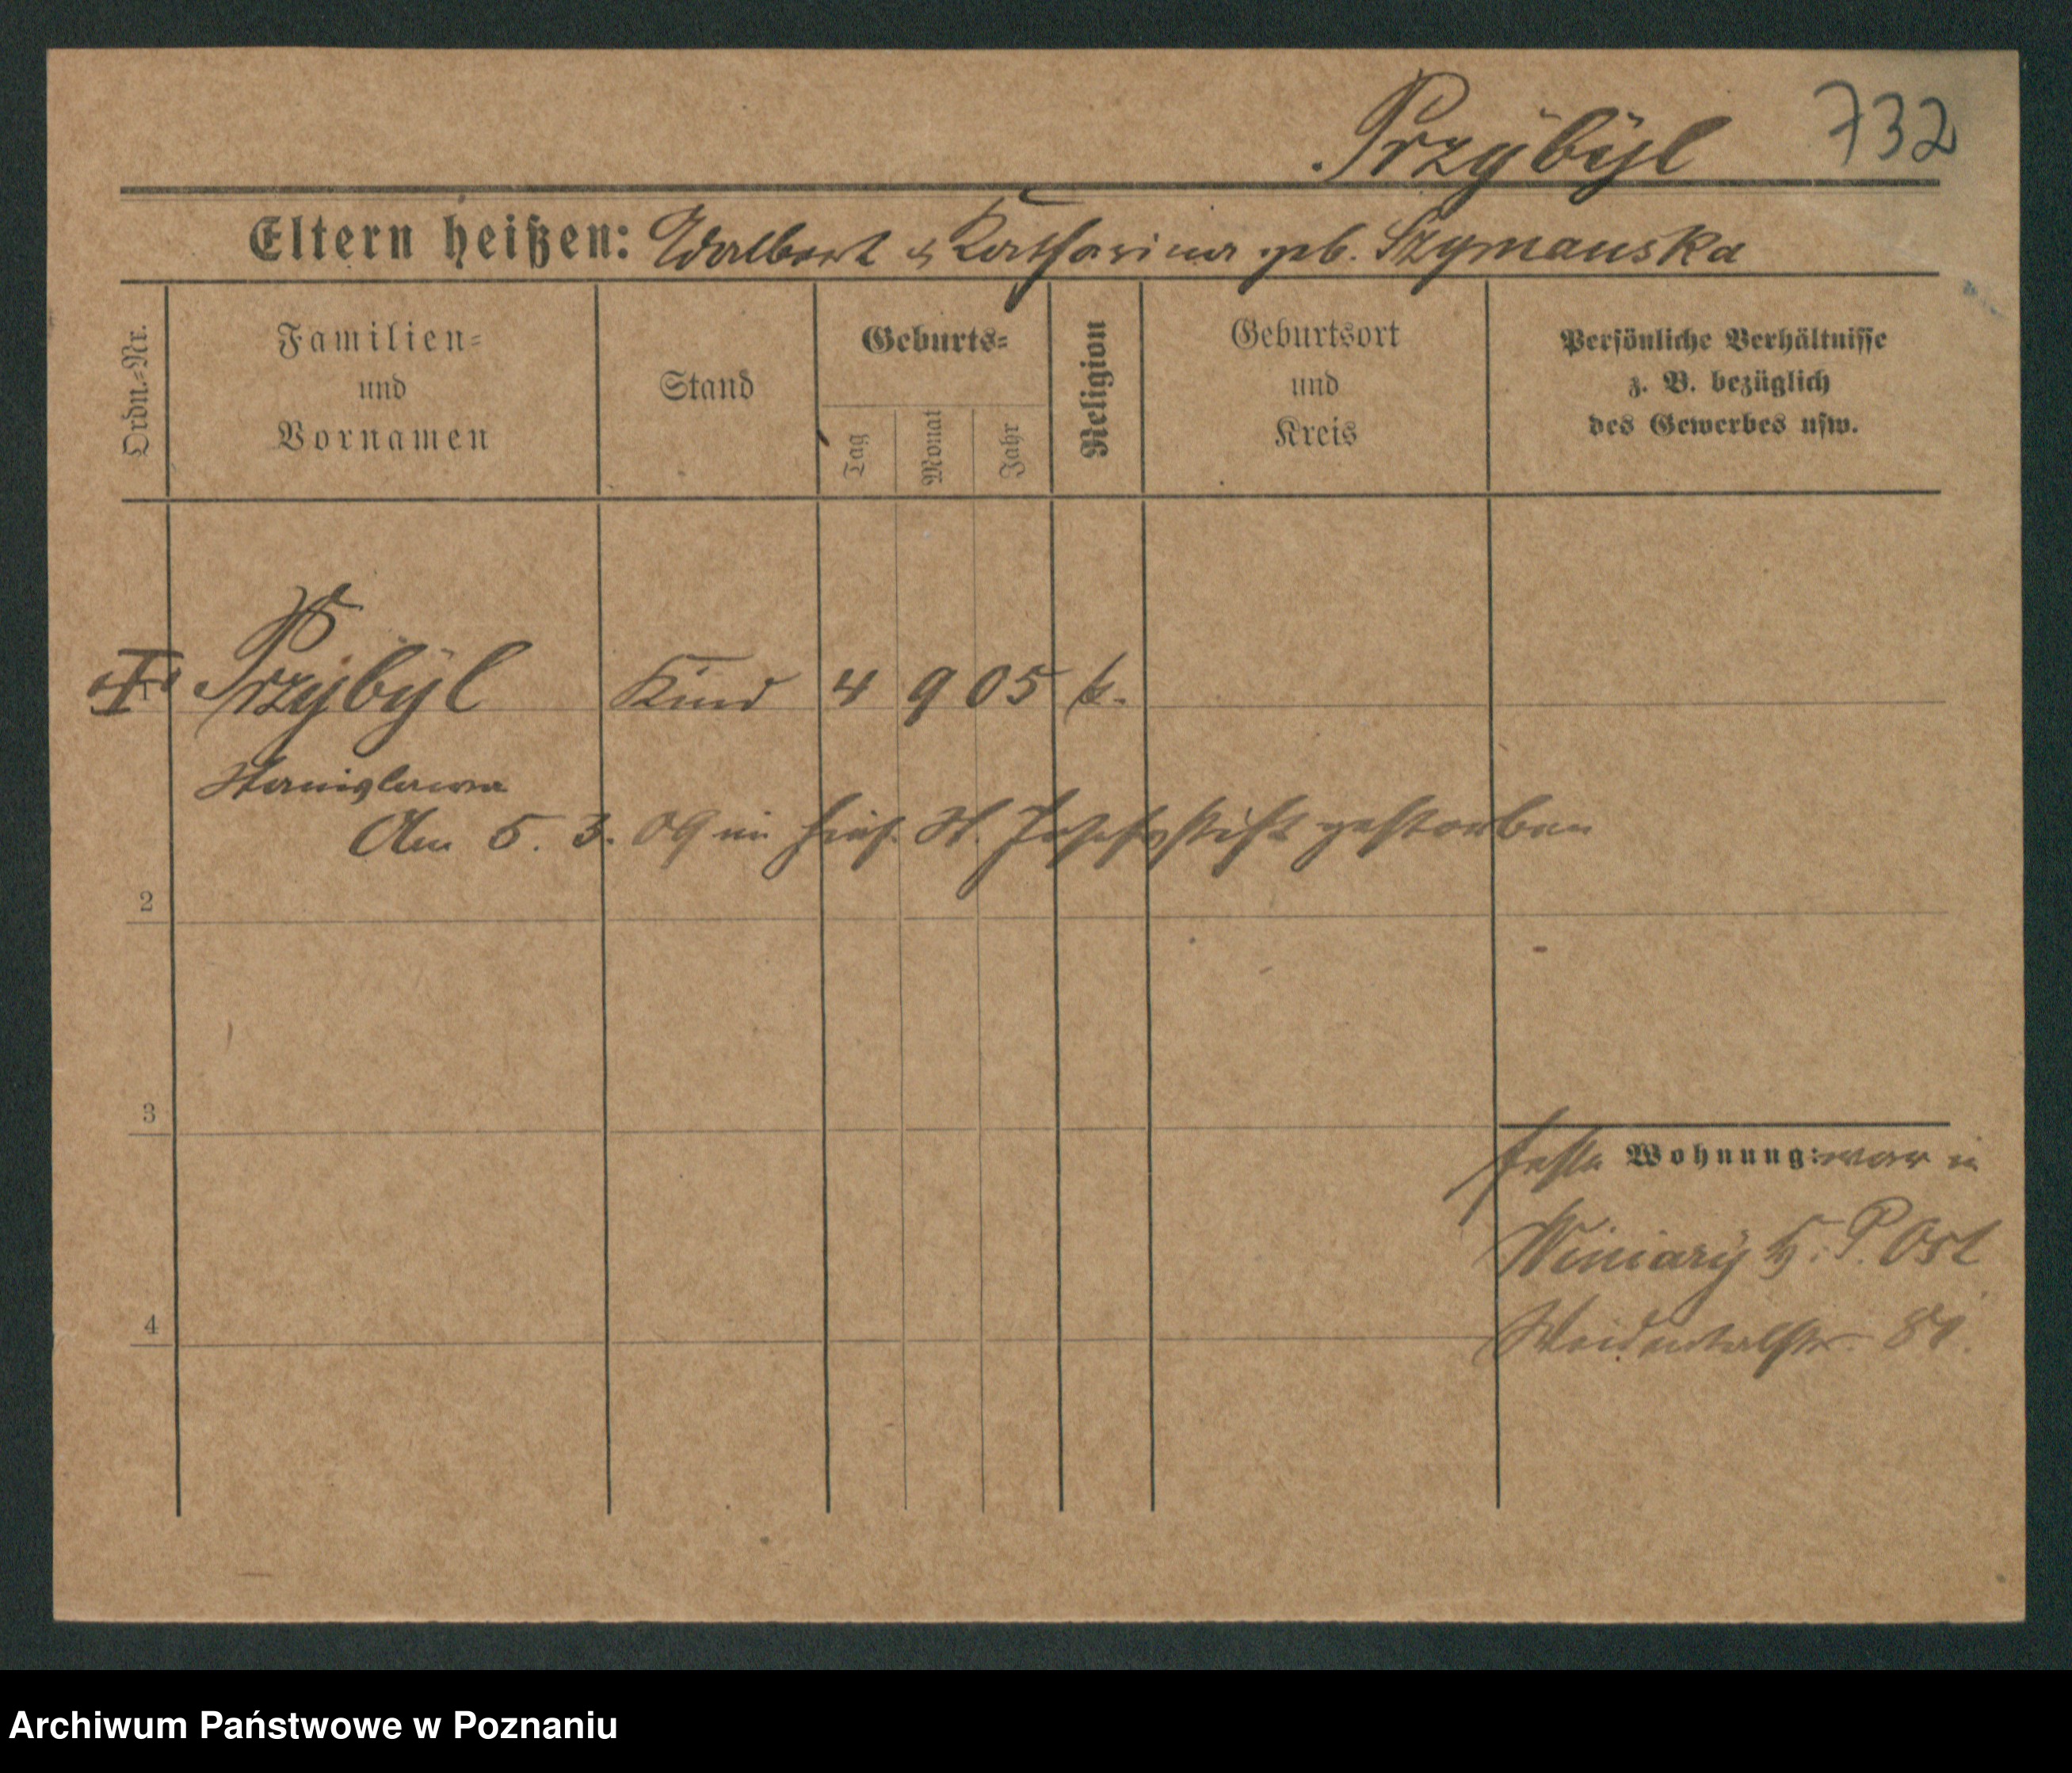 Przÿbÿl 732
Eltern heißen: Adalbert & Katharina geb. Szymanska
Ordn.=Nr.
Familien=
und
Vornamen
Stand
Geburts=
Tag
Monat
Jahr
Religion
Geburtsort
und
Kreis
Persönliche Verhältnisse
z. B. bezüglich
des Gewerbes usw.
1 Przÿbÿl Kind 4 9 05 k.
Stanislawa
Am 5. 3. 09 im hies. St. Josefsstift gestorben
2
3
feste Wohnung: war in
Winiary K. P. Ost
4
84.
Archiwum Państwowe w Poznaniu